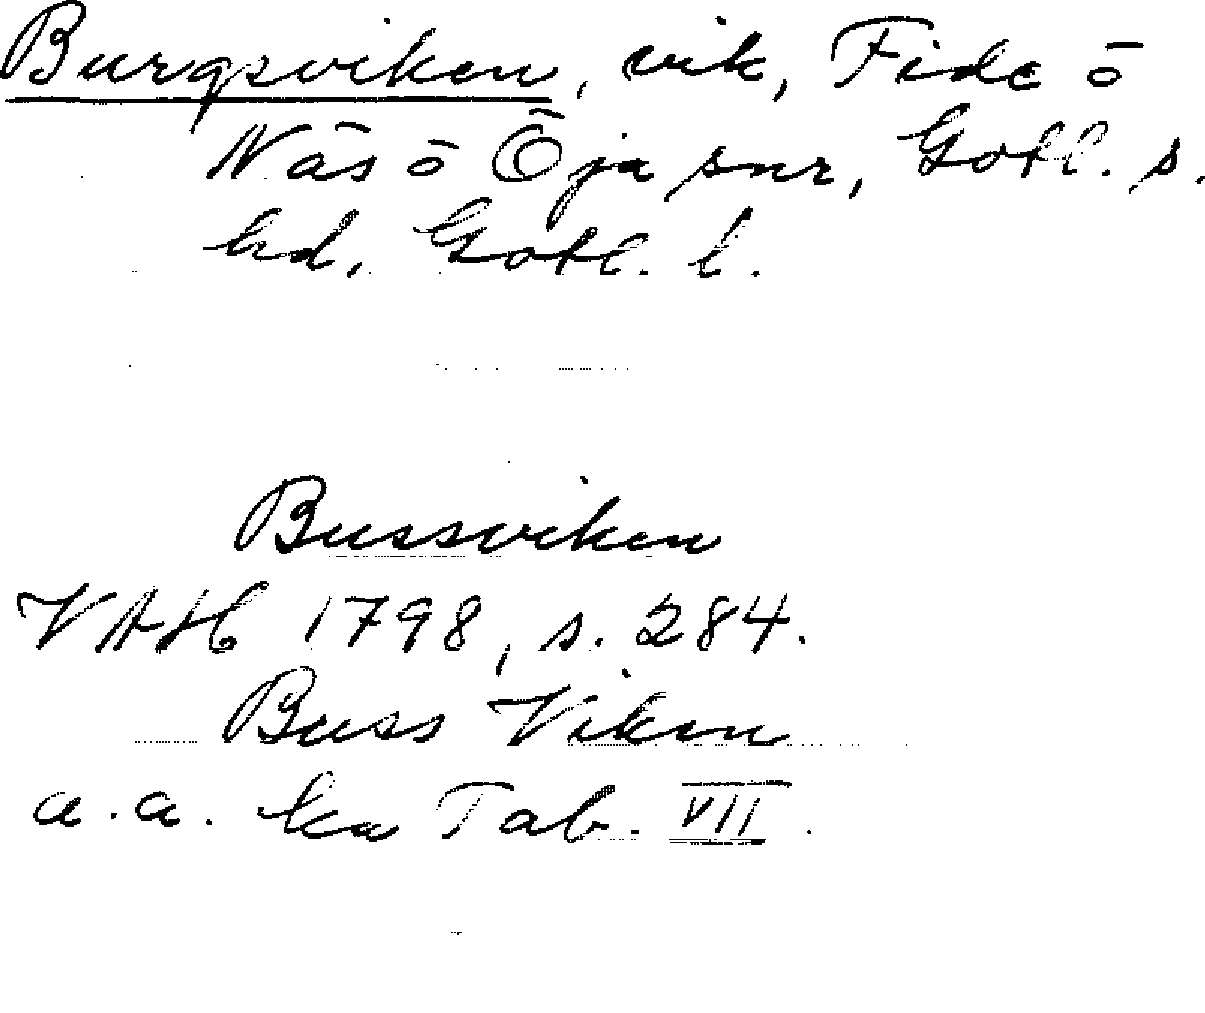 Burgsviken, vik, Fide o
Näs o Öja snr, Gotl. s.
hd, Gotl. l.
Bussviken
VAH 1798, s. 284.
Buss Viken
a.a. ka Tab. VII.